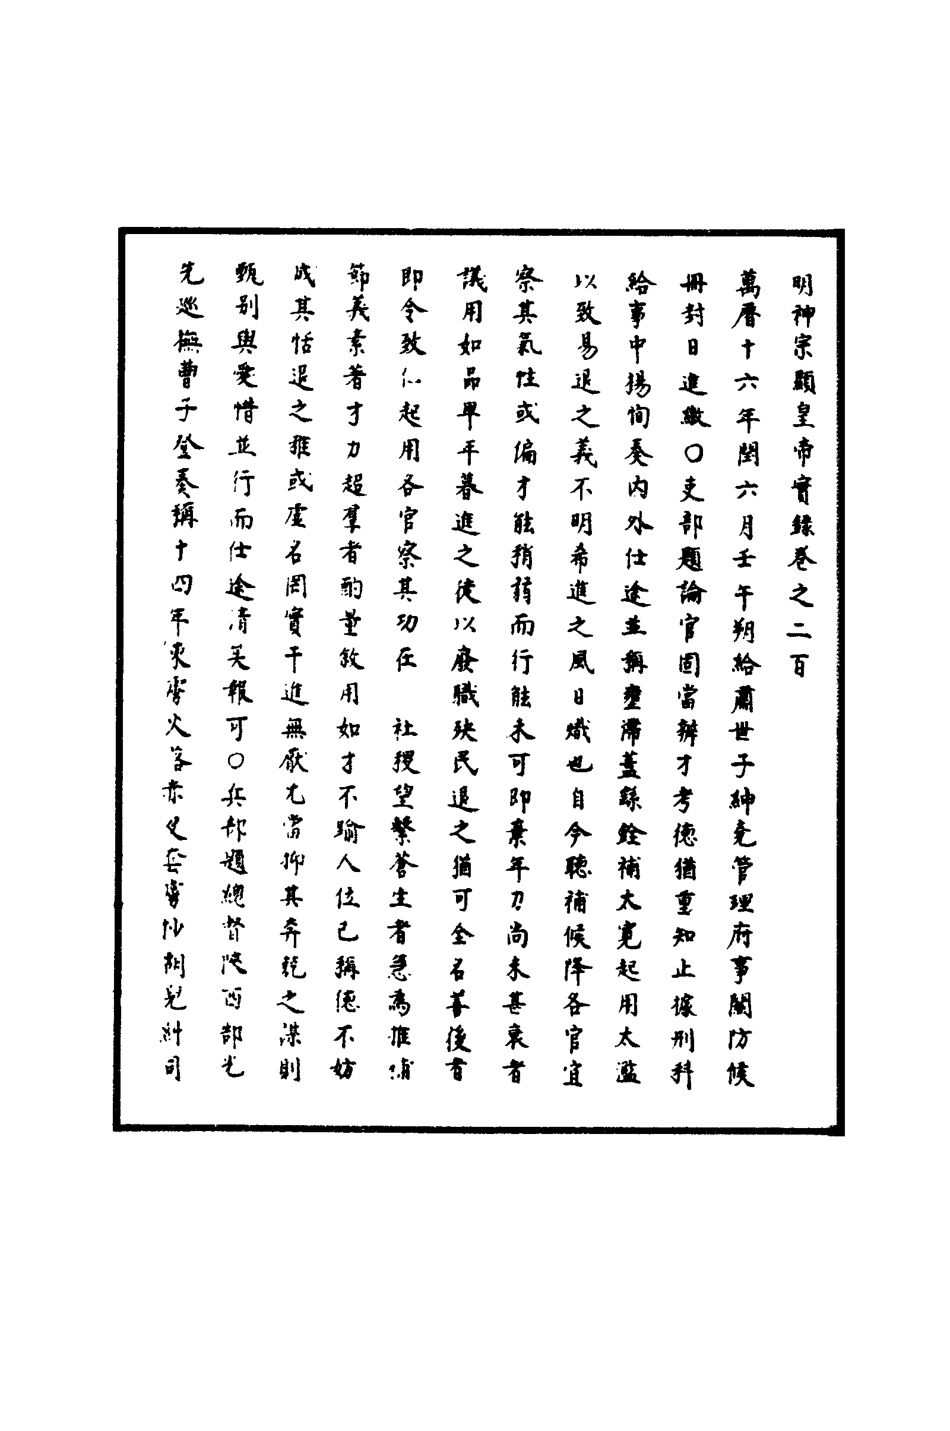 明神宗顯皇帝實錄卷之二百
萬曆十六年閏六月壬午朔給肅世子紳堯管理府事關防候
冊封日進繳〇吏部題論官固當辨才考德猶重知止據刑科
給事中楊恂奏內外仕途並稱壅滯蓋繇銓補太寬起用太濫
以致易退之義不明希進之風日熾也自今聽補候降各官宜
察其氣性或偏才能稍蒻而行能未可即棄年力尚未甚衰者
議用如品卑平暮進之徒以廢職殃民退之猶可全名善後者
即令致仁起用各官察其功在　社稷望繫蒼生者急為推補
節義素著才力超羣者酌量敘用如才不踰人位已稱德不妨
成其恬退之雅或虛名罔實干進無厭尤當抑其奔競之謀則
甄別與愛惜並行而仕途清矣報可〇兵部題總督陝西郜光
先巡撫曹子登奏稱十四年東虜火落赤及套虜抄胡兒糾司